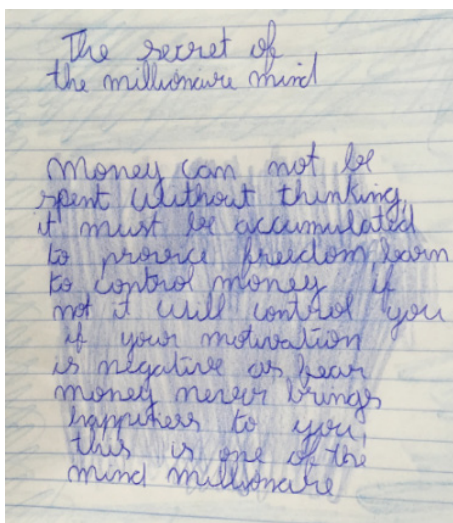 The secret of
the millionaire mind
money can not be
spent without thinking,
it must be accumulated
to provice freedom learn
to control money if
not it will control you
if your motivation
is negative as fear
money never brings
happiness to you,
this is one of the
mind millionaire